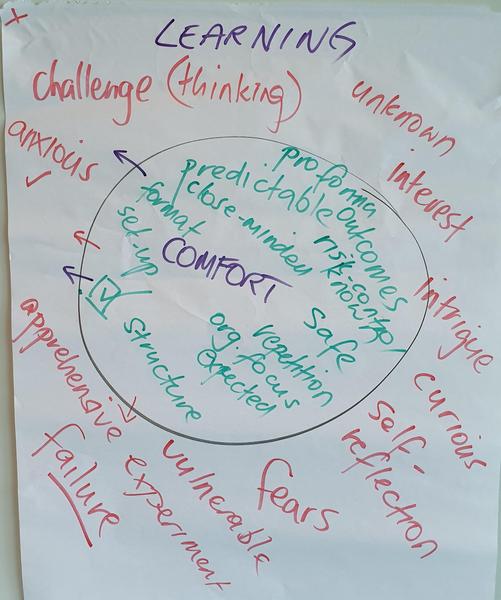 LEARNING
challenge (thinking)
unknown
anxious
interest
intrigue
curious
self-
reflection
fears
vulnerable
experiment
apprehensive
failure
COMFORT
proforma
predictable outcomes
close-minded
format
set-up
risk control
know
safe
structure
repetition
org focus
expected